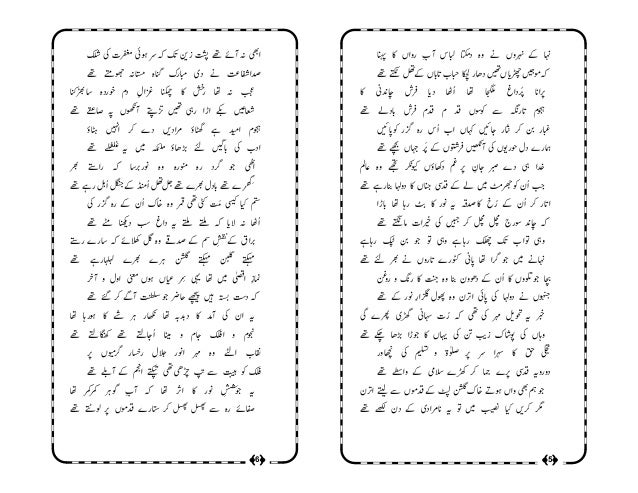 نہا کے نہروں نے وہ دمکتا لباس آب رواں کا پہنا
کہ موجیں چھڑیاں تھیں دھار لچکا حباب تاباں کے تھل ٹکے تھے
پرانا پرداغ ملگجا تھا اُٹھا دیا فرش چاندنی کا
ہجوم تار نگہ سے کوسوں قدم قدم فرش بادلے تھے
غبار بن کر نثار جائیں کہاں اب اُس رہ گزر کو پائیں
ہمارے دل حوریوں کی آنکھیں فرشتوں کے پر جہاں بچھے تھے
خدا ہی دے صبر جانِ پرغم دکھاؤں کیونکر تجھے وہ عالم
جب اُن کو جھرمٹ میں لے کے قدسی جناں کا دولہا بنا رہے تھے
اتار کر اُن کے رُخ کا صدقہ یہ نور کا بٹ رہا تھا باڑا
کہ چاند سورج مچل مچل کر جبیں کی خیرات مانگتے تھے
وہی تو اب تک چھلک رہا ہے وہی تو جوبن ٹپک رہا ہے
نہانے میں جو گرا تھا پانی کٹورے تاروں نے بھر لئے تھے
بچا جو تلووں کا اُن کے دھوون بنا وہ جنت کا رنگ و روغن
جنہوں نے دولہا کی پائی اترن وہ پھول گلزار نور کے تھے
خبر یہ تحویل مہر کی تھی کہ رُت سہانی گھڑی پھرے گی
وہاں کی پوشاک زیب تن کی یہاں کا جوڑا بڑھا چکے تھے
تجلی حق کا سہرا سر پر صلوٰۃ و تسلیم کی نچھاور
دو رویہ قدسی پرے جما کر کھڑے سلامی کے واسطے تھے
جو ہم بھی واں ہوتے خاک گلشن لپٹ کے قدموں سے لیتے اترن
مگر کریں کیا نصیب میں تو یہ نامرادی کے دن لکھے تھے
5
ابھی نہ آئے تھے پشت زین تک کہ سر ہوئی مغفرت کی شلک
صدا شفاعت نے دی مبارک گناہ مستانہ جھومتے تھے
عجب نہ تھا رخش کا چمکنا غزالِ دم خوردہ سا بھڑکنا
شعاعیں بکے اڑا رہی تھیں تڑپتے آنکھوں پہ صاعقے تھے
ہجوم امید ہے گھٹاؤ مرادیں دے کر انہیں ہٹاؤ
ادب کی باگیں لئے بڑھاؤ ملائکہ میں یہ غلغلے تھے
اُٹھی جو گرد رہ منورہ وہ نور برسا کہ راستے بھر
گھرے تھے بادل بھرے تھے جل تھل اُمنڈ کے جنگل اُبل رہے تھے
ستم کیا کیسی مت کٹی تھی قمر وہ خاک اُن کے رہ گزر کی
اُٹھا نہ لایا کہ ملتے ملتے یہ داغ سب دیکھتا مٹے تھے
براق کے نقش سم کے صدقے وہ گل کھلائے کہ سارے رستے
مہکتے گلبن مہکتے گلشن ہرے بھرے لہلہا رہے تھے
نماز اقصیٰ میں تھا یہی سر عیاں ہوں معنی اول و آخر
کہ دست بستہ ہیں پیچھے حاضر جو سلطنت آگے کر گئے تھے
یہ ان کی آمد کا دبدبہ تھا نکھار ہر شے کا ہو رہا تھا
نجوم و افلاک جام و مینا اُجالتے تھے کھنگالتے تھے
نقاب الٹے وہ مہر انور جلال رخسار گرمیوں پر
فلک کو ہیبت سے تپ چڑھی تھی تپکتے انجم کے آبلے تھے
یہ جوشش نور کا اثر تھا کہ آب گوہر کمر کمر تھا
صفائے رہ سے پھسل پھسل کر ستارے قدموں پر لوٹتے تھے
6